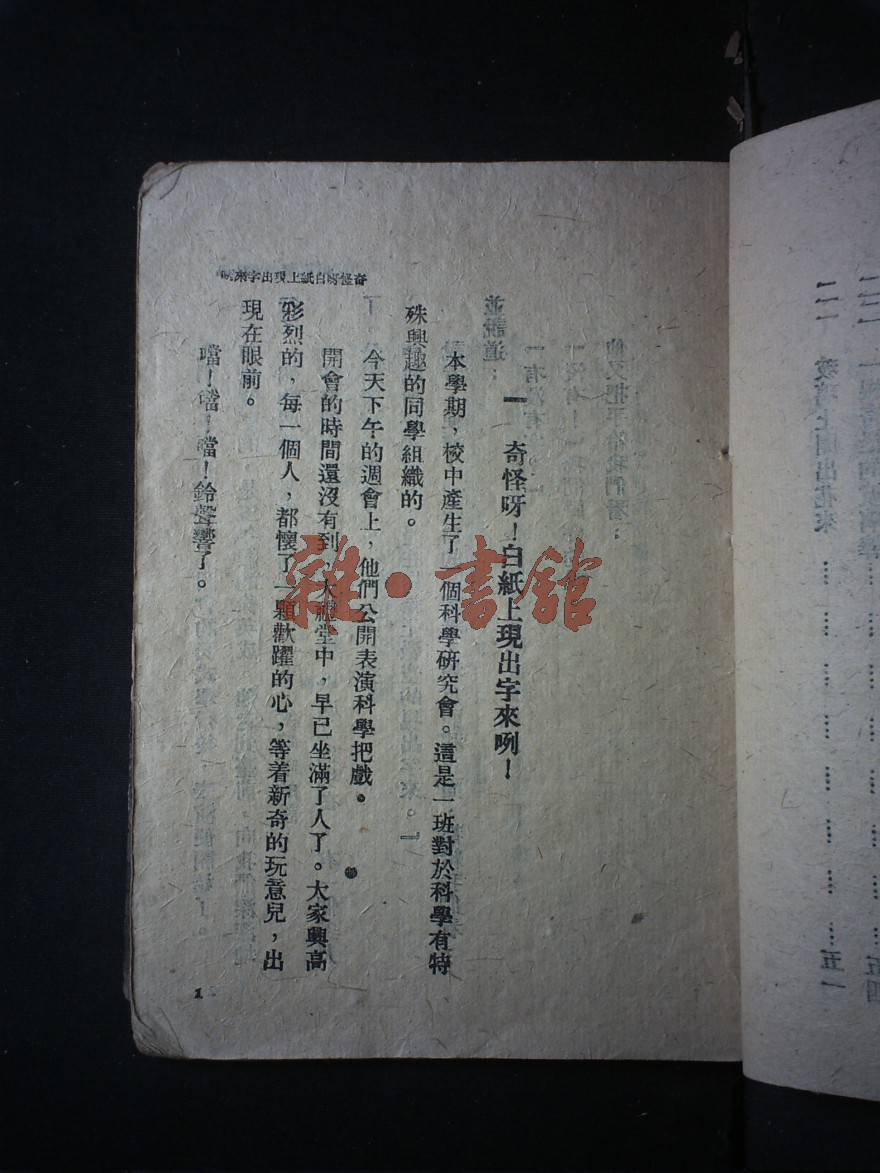 奇怪呀白紙上現出字來咧
一 奇怪呀!白紙上現出字來咧!
本學期,校中產生了一個科學研究會。這是一班對於科學有特
殊興趣的同學組織的。
今天下午的週會上,他們公開表演科學把戲。
開會的時間還沒有到,大禮堂中,早已坐滿了人了。大家興高
彩烈的,每一個人,都懷了一顆歡躍的心,等着新奇的玩意兒,出
現在眼前。
噹!噹!噹!鈴聲響了。
1
雜·書館